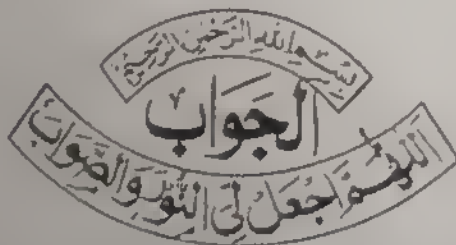 بِسْمِ اللهِ الرَّحْمٰنِ الرَّحِيْمِ
اَلْجَوَابْ
اَللّٰهُمَّ اجْعَلْ لِيَ النُّوْرَ وَالصَّوَابْ